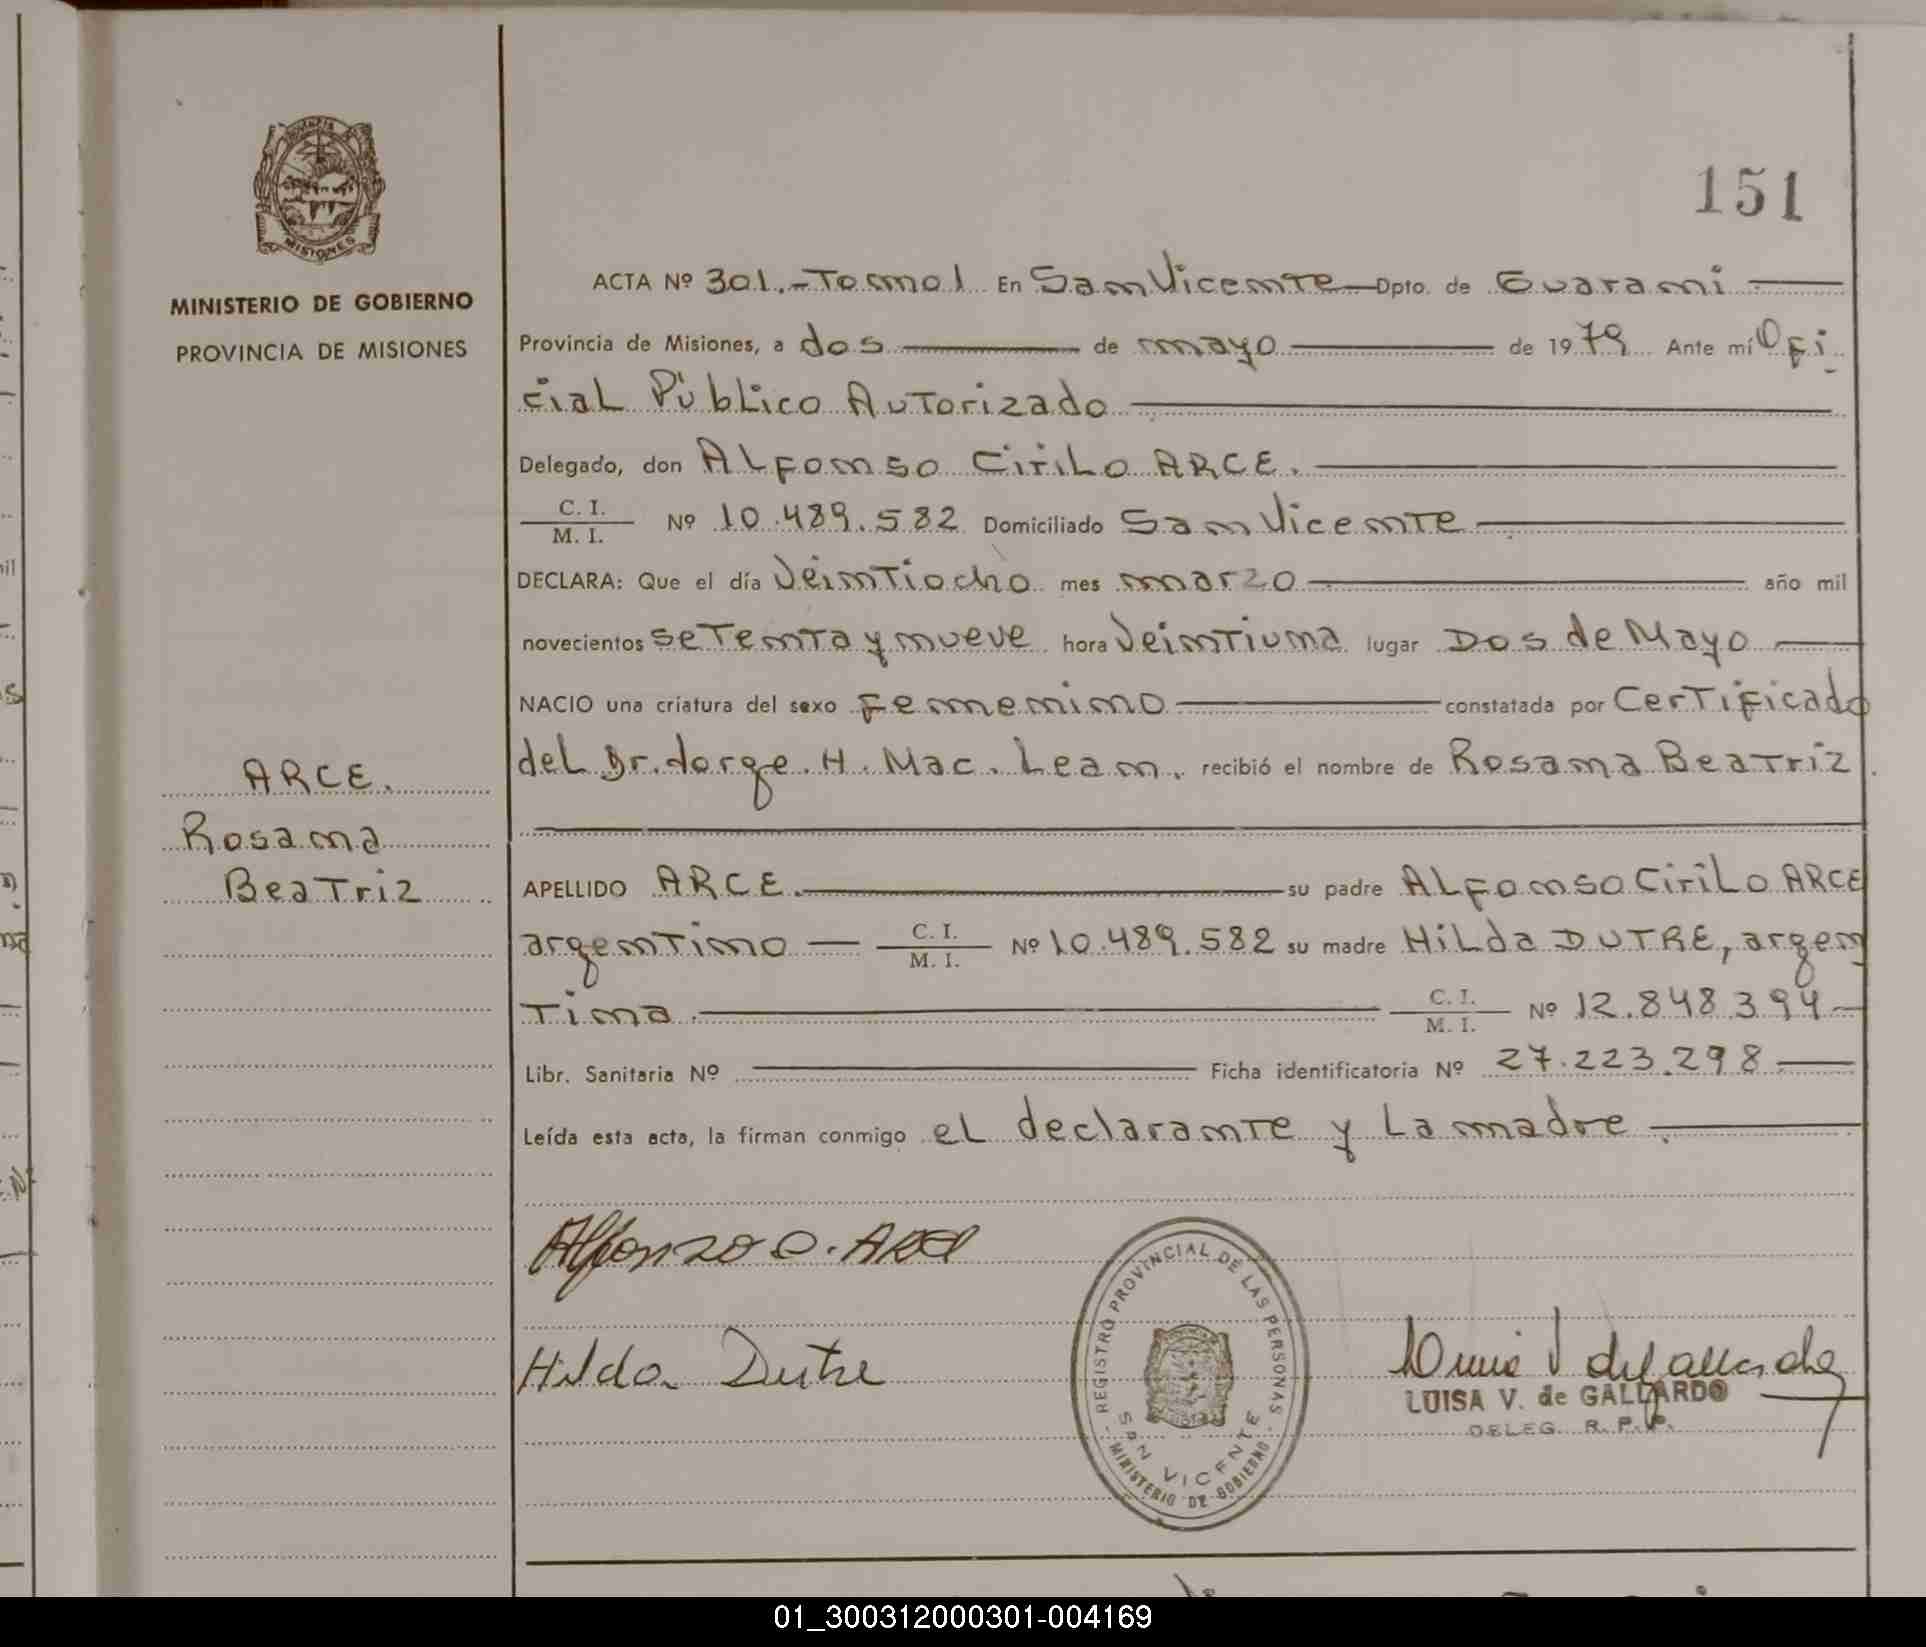 151
MINISTERIO DE GOBIERNO
PROVINCIA DE MISIONES
ACTA Nº 301.- Tomo I En San Vicente Dpto. de Guarani
Provincia de Misiones, a dos de mayo de 1979 Ante mí Ofi
cial Público Autorizado
Delegado, don ALFonso CiriLo ARCE.
C. I.
M. I. Nº 10.489.582 Domiciliado San Vicente
DECLARA: Que el día Veintiocho mes marzo año mil
novecientos setenta y nueve hora Veintiuna lugar Dos de Mayo
NACIO una criatura del sexo Femenino constatada por Certificado
del Dr. Jorge. H. Mac. Lean. recibió el nombre de Rosana Beatriz
ARCE.
Rosana
Beatriz
APELLIDO ARCE. su padre ALFonso CiriLo ARCE
argentino C. I.
M. I. Nº 10.489.582 su madre HiLda DUTRE, argen
tina C. I.
M. I. Nº 12.848.394
Libr. Sanitaria Nº Ficha identificatoria Nº 27.223.298
Leída esta acta, la firman conmigo eL declarante y La madre
Alfonzo C. Arce
Hilda Dutre
REGISTRO PROVINCIAL DE LAS PERSONAS
SAN VICENTE
MINISTERIO DE GOBIERNO
LUISA V. de GALLARDO
DELEG. R. P. P.
MISIONES
01_300312000301-004169